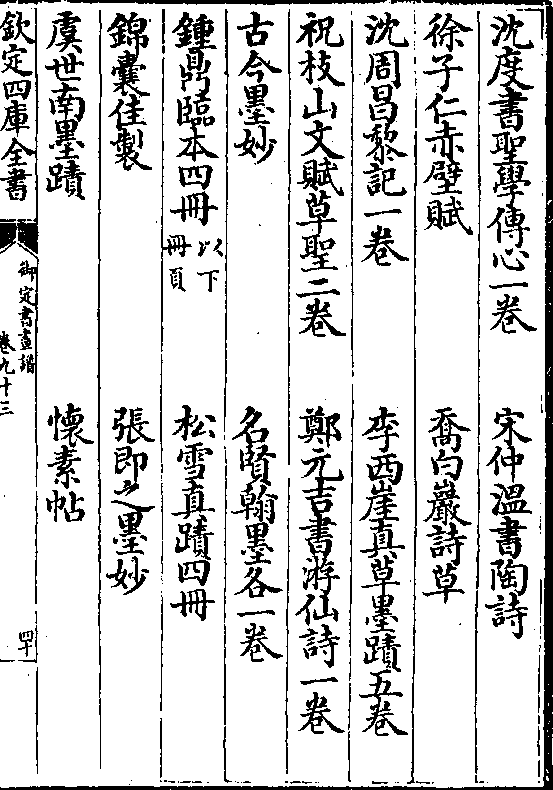 沈度書聖學傳心一卷　宋仲溫書陶詩
徐子仁赤壁賦　喬白巖詩草
沈周昌黎記一卷　李西崖真草墨蹟五卷
祝枝山文賦草聖二卷　鄭元吉書游仙詩一卷
古今墨妙　名賢翰墨各一卷
鍾鼎臨本四冊以下冊頁　松雪真蹟四冊
錦囊佳製　張即之墨妙
虞世南墨蹟　懷素帖
欽定四庫全書　御定書畫譜　卷九十三　四十